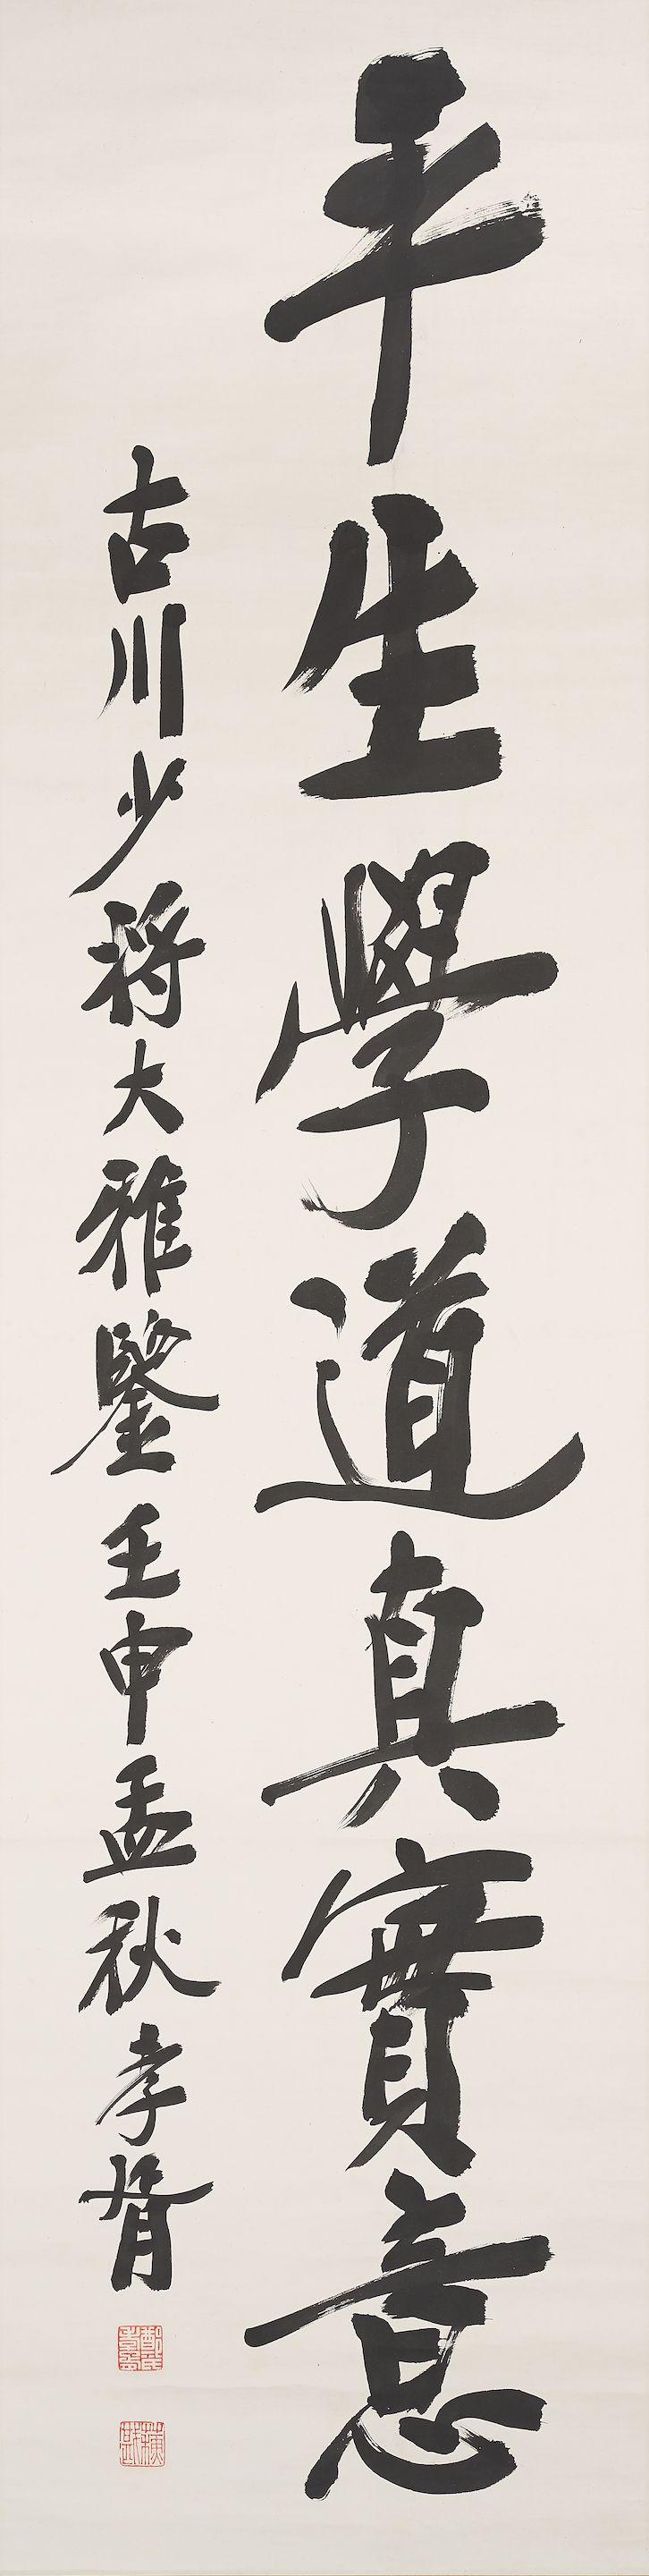 平生學道真實意
古川少将大雅鑒壬申孟秋孝胥